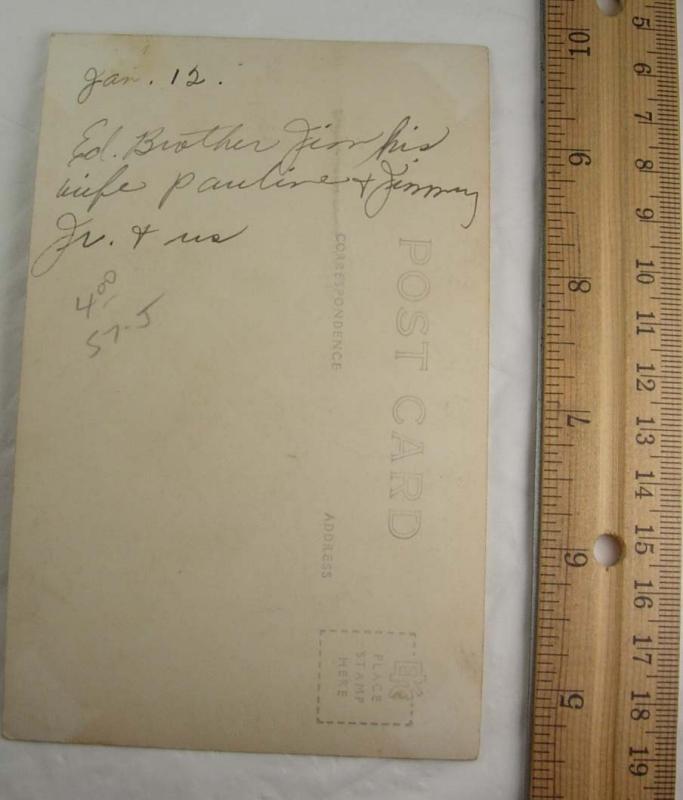 Jan. 12.
Ed. Brother Jim his
wife Pauline + Jimmy
Jr. + us
4.00
57-5
POST CARD
CORRESPONDENCE
ADDRESS
PLACE
STAMP
HERE
10
9
8
7
6
5
5
6
7
8
9
10
11
12
13
14
15
16
17
18
19